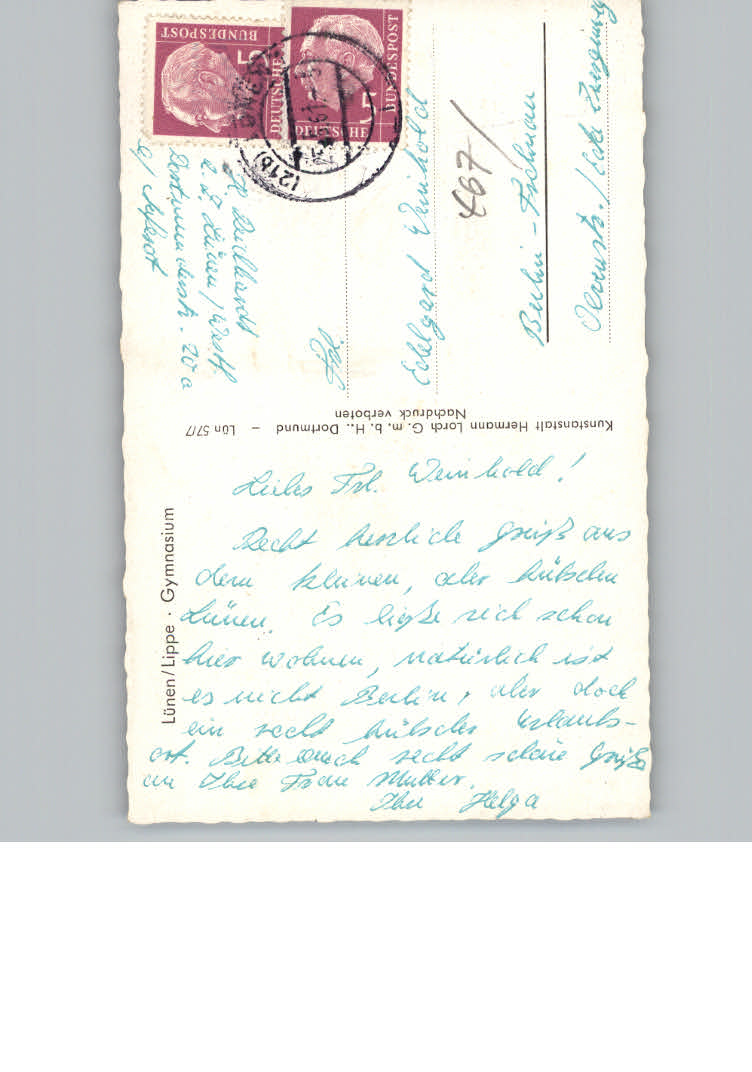 Liebes Frl. Weinhold!
Recht herzliche Grüße aus
dem kleinen, aber hübschen
Lünen. Es ließe sich schon
hier wohnen, natürlich ist
es nicht Berlin, aber doch
ein recht hübscher Urlaubs-
ort. Bitte auch recht schöne Grüße
an Ihre Frau Mutter.
Ihre Helga
Lünen/Lippe · Gymnasium
Kunstanstalt Hermann Lorch G. m. b. H., Dortmund – Lün 57/7
Nachdruck verboten
Frl.
Edelgard Weinhold
Berlin-
467/
H. Burkhardt
z. Z. Lünen/Westf.
Dortmunderstr. 20 a
DEUTSCHE
BUNDESPOST
5
DEUTSCHE
BUNDESPOST
5
(21b)